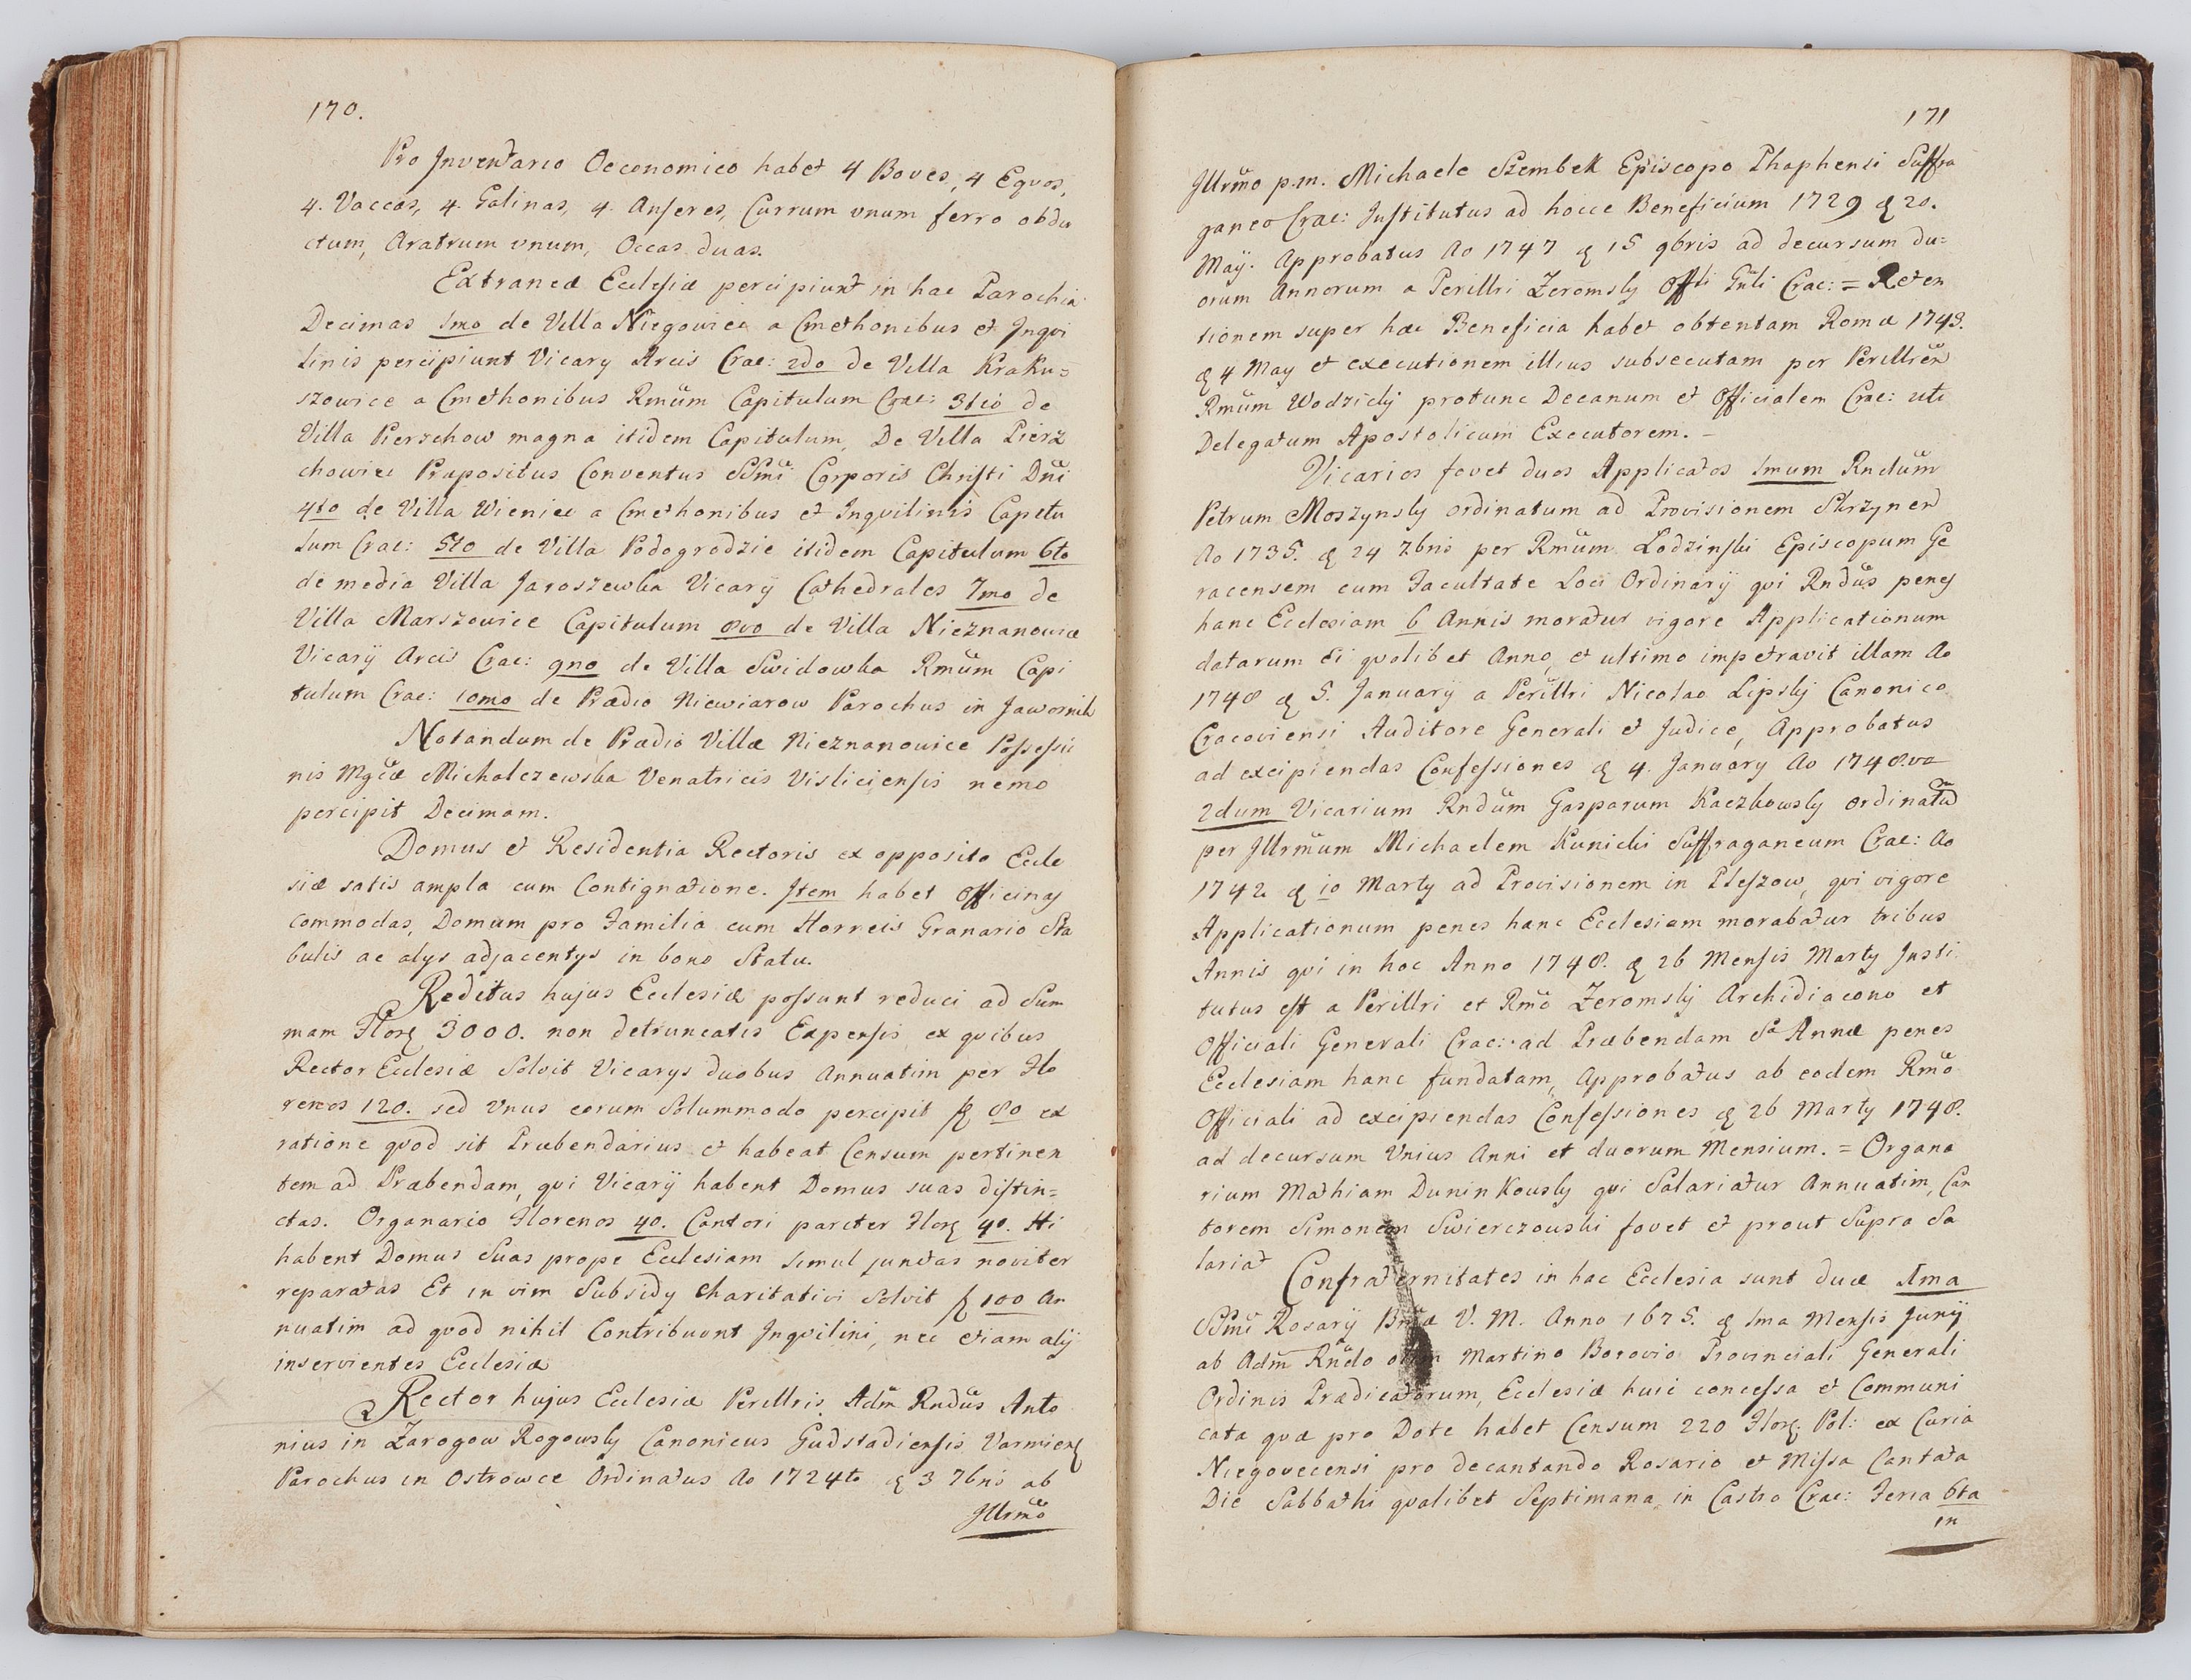 170.
Pro Inventario Oeconomico habet 4 Boves, 4 Eqvos,
4. Vaccas, 4. Galinas, 4. Anseres, Currum vnum ferro obdu
ctum, Aratrum vnum, Occas duas.
Extraneæ Ecclesiæ percipiunt in hac Parochia
Decimas 1mo de Villa Niegowici a Cmethonibus et Inqvi
linis percipiunt Vicary Arcis Crac: 2do de Villa Kraku=
szowice a Cmethonibus Rmum Capitulum Crac: 3tio de
Villa Pierzchow magna itidem Capitulum, De Villa Pierz
chowice Præpositus Conventus SSmi Corporis Christi Dni
4to de Villa Wieniec a Cmethonibus et Inqvilinis Capitu
lum Crac: 5to de Villa Podogrodzie itidem Capitulum 6to
de media Villa Jaroszewka Vicarÿ Cathedrales 7mo de
Villa Marszowice Capitulum 8vo de Villa Nieznanowice
Vicarÿ Arcis Crac: 9no de Villa Swidowka Rmum Capi
tulum Crac: 10mo de Prædio Niewiarow Parochus in Jawornik
Notandum de Prædio Villæ Nieznanowice Possessio
nis Mgcæ Michalczewska Venatricis Visliciensis nemo
percipit Decimam.
Domus et Residentia Rectoris ex opposito Eccle
siæ satis ampla cum Contignatione. Item habet Officinas
commodas, Domum pro Familia cum Horreis Granario Sta
bulis ac alys adjacentys in bono Statu.
Reditus hujus Ecclesiæ possunt reduci ad Sum
mam Flor 3000. non detruncatis Expensis, ex qvibus
Rector Ecclesiæ Solvit Vicarys duobus Annuatim per Flo
renos 120. sed Vnus eorum Solummodo percipit f 80 ex
ratione qvod sit Præbendarius et habeat Censum pertinen
tem ad Præbendam, qvi Vicarÿ habent Domus suas distin=
ctas. Organario Florenos 40. Cantori pariter Flor 40. Hi
habent Domus Suas prope Ecclesiam simul junctas noviter
reparatas Et in vim Subsidy Charitativi Solvit f 100 An
nuatim ad qvod nihil Contribuunt Inqvilini, nec etiam alÿ
inservientes Ecclesiæ
Rector hujus Ecclesiæ Perillris Adm Rndus Anto
nius in Zarogow Rogowsky Canonicus Gudstadiensis Varmien
Parochus in Ostrowce Ordinatus Ao 1724to d 3 7bris ab
Illrmo
171
Illrmo p.m. Michaele Szembek Episcopo Phaphensi Suffra
ganeo Crac: Institutus ad hocce Beneficium 1729 d 20.
Maÿ. Approbatus Ao 1747 d 15 9bris ad decursum du=
orum Annorum a Perillri Zeromsky Offli Gnli Crac: = Reten
tionem super hæc Beneficia habet obtentam Romæ 1743.
d 4 May et executionem illius subsecutam per Perillrem
Rmum Wodzicky protunc Decanum et Officialem Crac: uti
Delegatum Apostolicum Executorem. –
Vicarios fovet duos Applicatos 1mum Rndum
Petrum Moszynsky ordinatum ad Provisionem Skrzynen
Ao 1735. d 24 7bris per Rmum Lodzinski Episcopum Ge
racensem cum Facultate Loci Ordinarÿ qvi Rndus penes
hanc Ecclesiam 6 Annis moratur vigore Applicationum
datarum Ei qvolibet Anno, et ultimo impetravit illam Ao
1748 d 5. Januarÿ a Perillri Nicolao Lipsky Canonico
Cracoviensi Auditore Generali et Judice, Approbatus
ad excipiendas Confessiones d 4. January Ao 1748va
2dum Vicarium Rndum Gasparum Kaczkowsky ordinatum
per Illrmum Michaelem Kunicki Suffraganeum Crac: Ao
1742 d 10 Marty ad Provisionem in Pleszow, qvi vigore
Applicationum penes hanc Ecclesiam morabatur tribus
Annis qvi in hoc Anno 1748. d 26 Mensis Marty Insti
tutus est a Perillri et Rmo Zeromsky Archidiacono et
Officiali Generali Crac: ad Præbendam Sæ Annæ penes
Ecclesiam hanc fundatam, Approbatus ab eodem Rmo
Officiali ad excipiendas Confessiones d 26 Marty 1748.
ad decursum Vnius Anni et duorum Mensium. = Organa
rium Mathiam Dunin Kousky qvi Salariatur Annuatim, Can
torem Simonem Swierczouski fovet et prout Supra Sa
lariat
Confraternitates in hac Ecclesia sunt duæ 1ma
SSmi Rosarÿ Bmæ V. M. Anno 1675. d 1ma Mensis Junÿ
ab Adm Rndo Martino Borovio Provinciali Generali
Ordinis Prædicatorum, Ecclesiæ huic concessa et Communi
cata qvæ pro Dote habet Censum 220 Flor Pol: ex Curia
Niegovecensi pro decantando Rosario et Missa Cantata
Die Sabbathi qvalibet Septimana, in Castro Crac: Feria 6ta
in